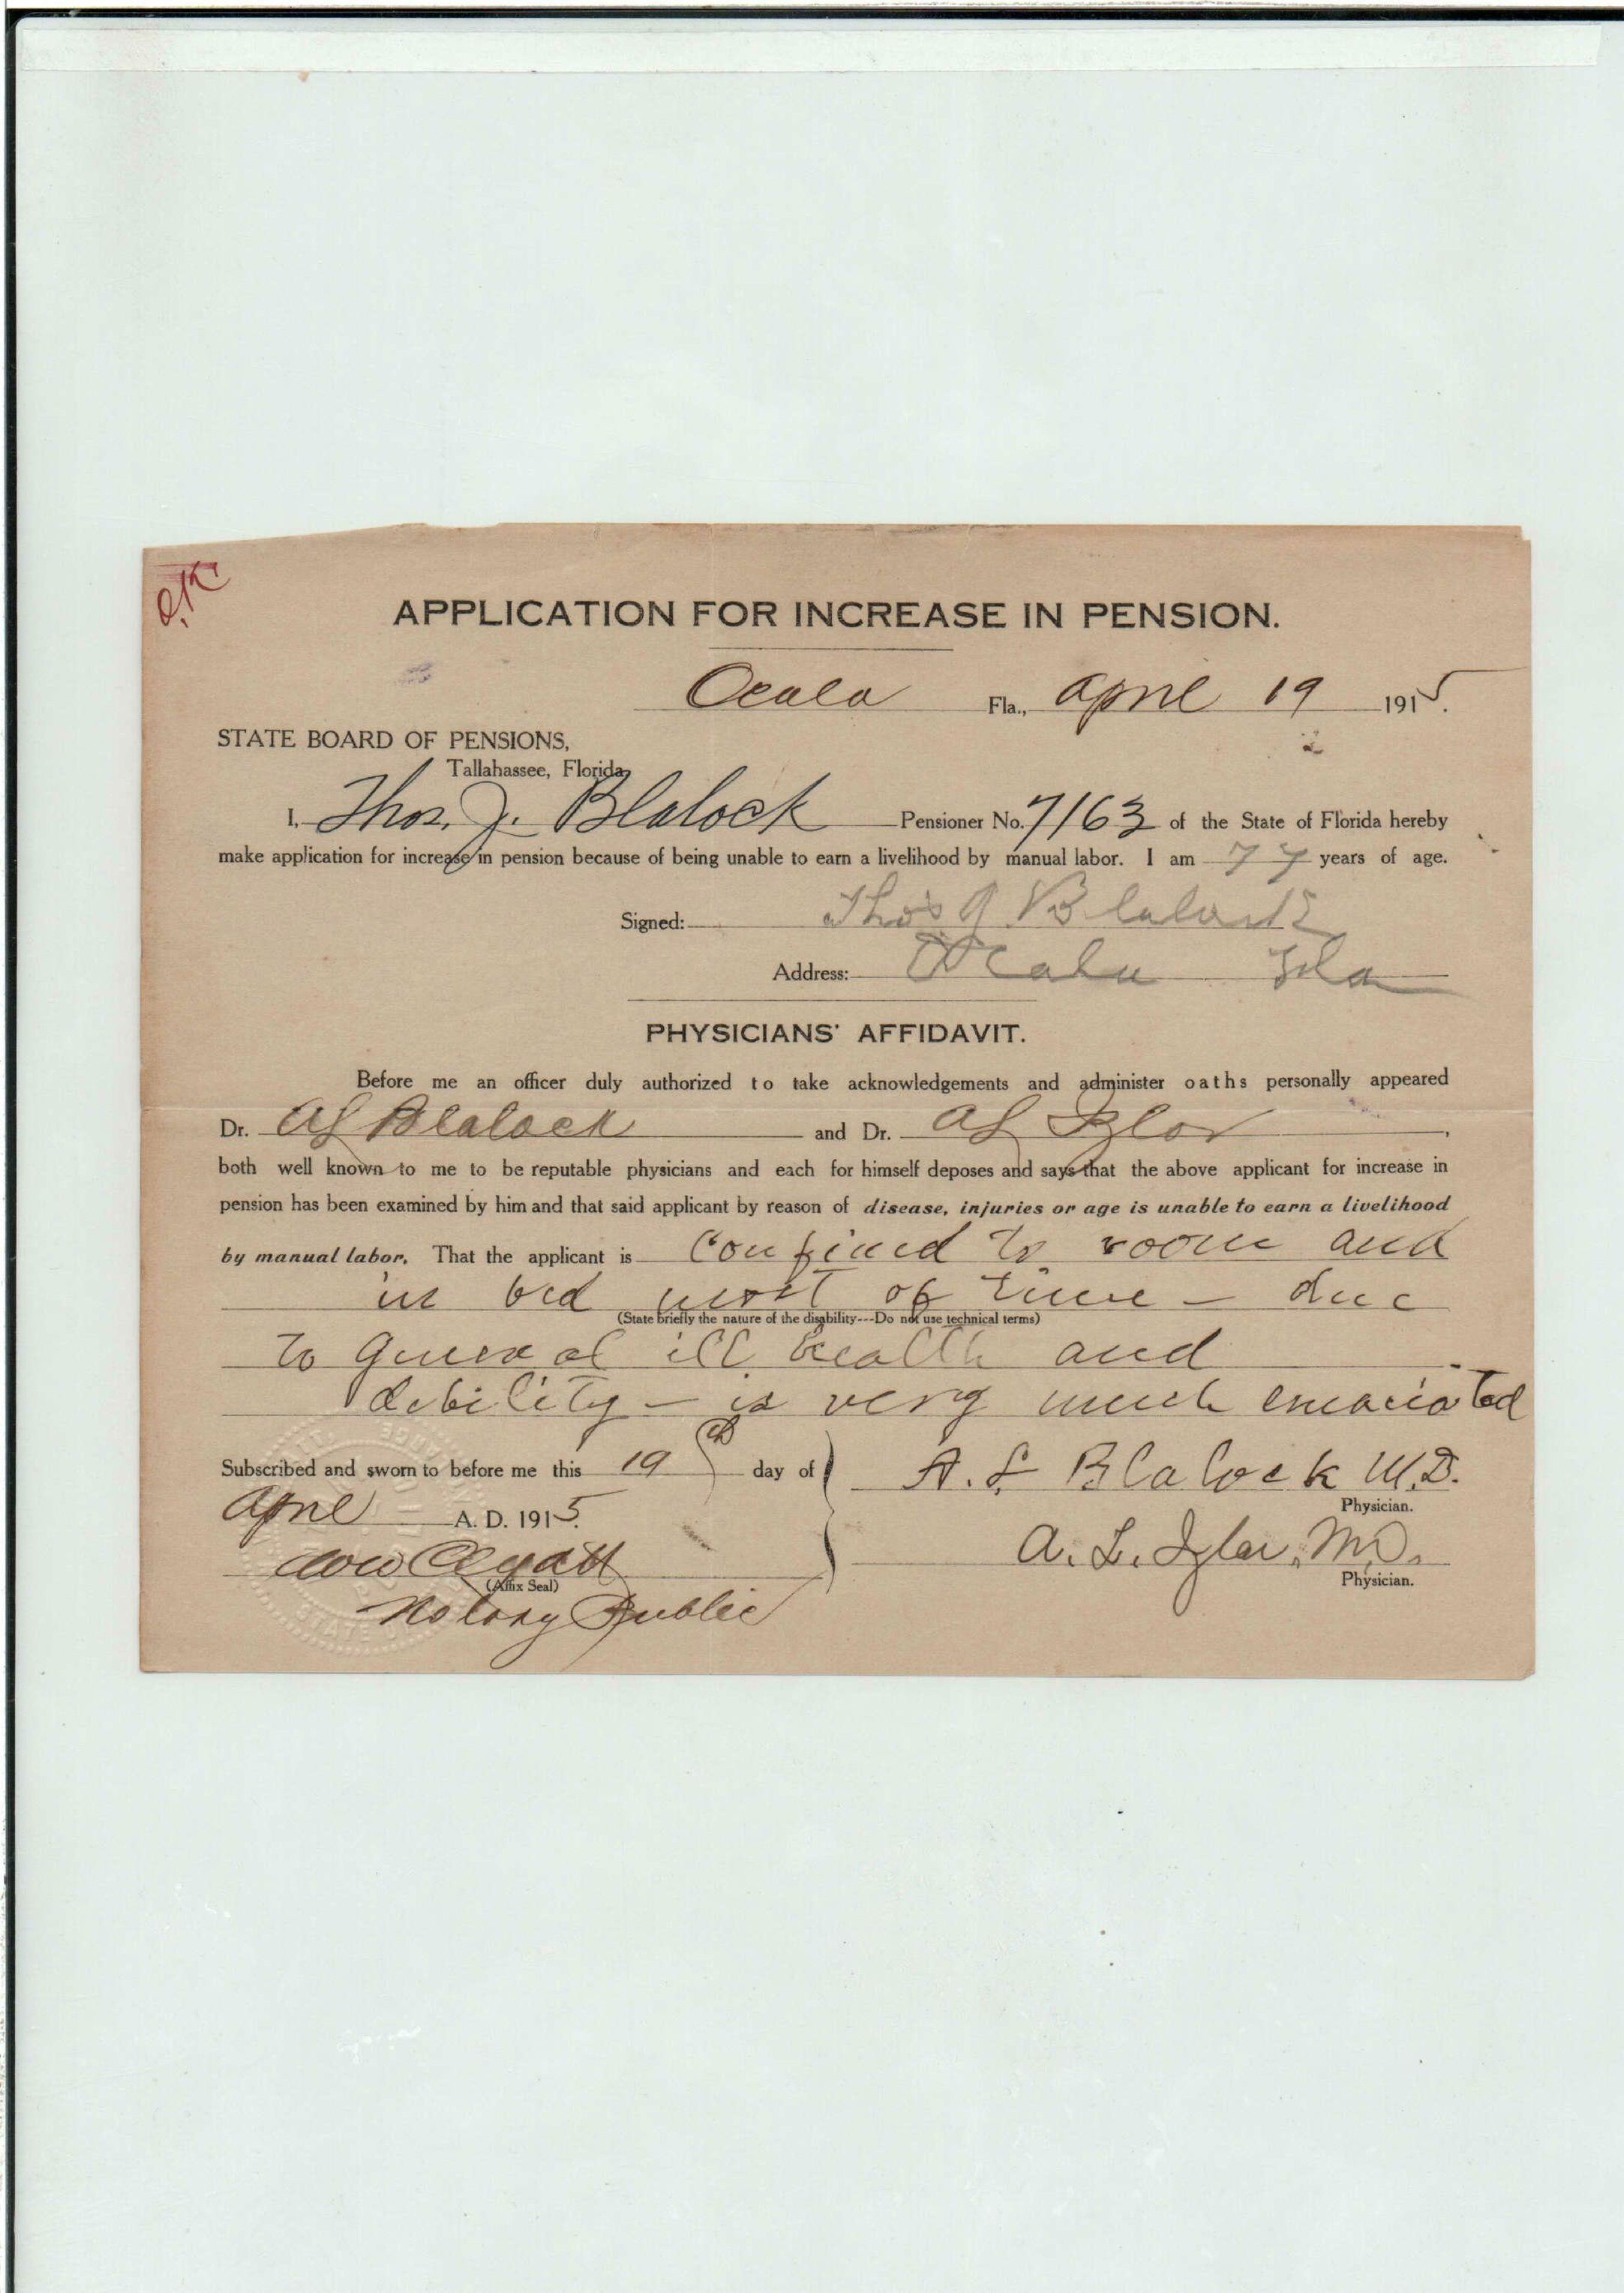 O.K.
APPLICATION FOR INCREASE IN PENSION.
Ocala Fla., April 19 1915.
STATE BOARD OF PENSIONS,
Tallahassee, Florida
I, Thos. J. Blalock Pensioner No. 7163 of the State of Florida hereby
make application for increase in pension because of being unable to earn a livelihood by manual labor. I am 77 years of age.
Signed: Thos J Blalock
Address: Ocala Fla
PHYSICIANS' AFFIDAVIT.
Before me an officer duly authorized to take acknowledgements and administer oaths personally appeared
Dr. A L Blalock and Dr. A L Izlar,
both well known to me to be reputable physicians and each for himself deposes and says that the above applicant for increase in
pension has been examined by him and that said applicant by reason of disease, injuries or age is unable to earn a livelihood
by manual labor. That the applicant is Confined to room and
in bed most of time - due
(State briefly the nature of the disability---Do not use technical terms)
to general ill health and
debility - is very much emaciated
Subscribed and sworn to before me this 19th day of
April A. D. 1915.
(Affix Seal)
Notary Public
A. L. Blalock M.D.
Physician.
A. L. Izlar, M.D.
Physician.